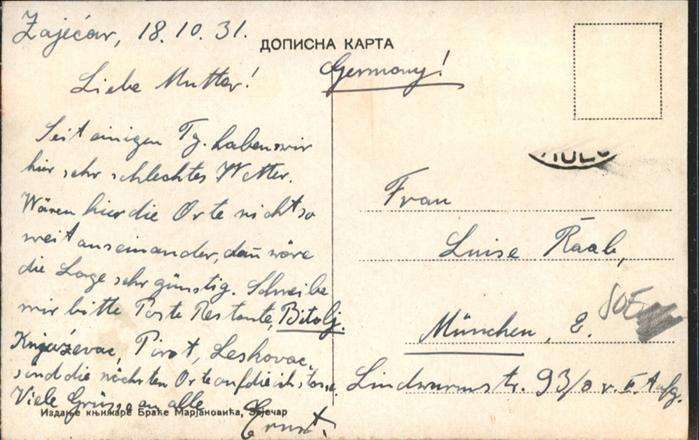 Zaječar, 18.10.31.
ДОПИСНА КАРТА
Germany!
Liebe Mutter!
Seit einigen Tg. haben wir
hier sehr schlechtes Wetter.
Wären hier die Orte nicht so
weit auseinander, dañ wäre
die Lage sehr günstig. Schreibe
mir bitte Poste Restante, Bitolj.
Knjaževac, Pirot, Leskovac,
sind die nächsten Orte auf die ich
Viele Grüsse an alle
Ernst.
Издање књижаре Браће Марјановића, Зајечар
Frau
Luise Raab,
München, 2.
Lindwurmstr. 93/0 v. II. Aufg.